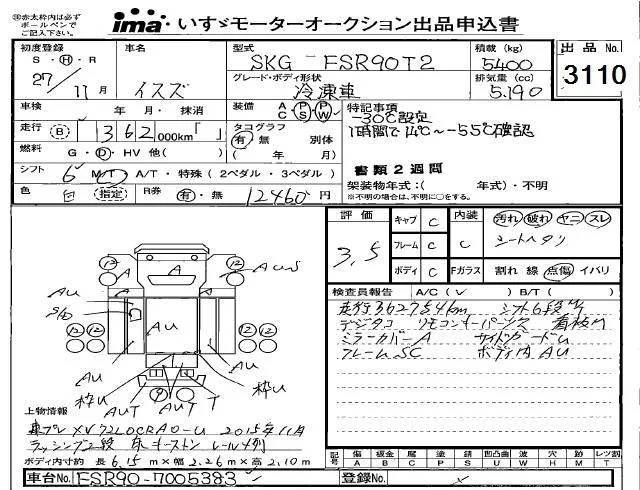 ※赤太枠内は必ず
ボールペンで
ご記入下さい。
ima いすゞモーターオークション出品申込書
初度登録 車名 型式 積載 (kg) 出品 No.
S・H・R イスズ SKG-FSR90T2 5400 3110
27年11月 グレード・ボディ形状 冷凍車 排気量 (cc) 5.190
車検 年・月・抹消 装備 A C P S P W 特記事項
-30℃設定
走行 (B) 362 000km「 」 タコグラフ 有・無 別体 1時間で14℃〜-5.5℃確認
燃料 G・D・HV 他( ) ( 年 月) 書類2週間
シフト 6 MT・A/T・特殊(2ペダル・3ペダル) 架装物年式:( 年式)・不明
色 白 (指定) R券 有・無 12460円 ※不明の場合は、不明に○をする。
評価 3.5
キャブ C 内装 C 汚れ 破れ ヤニ スレ
フレーム C シートヘタリ
ボディ C Fガラス 割れ 線 点傷 イバリ
検査員報告 A/C(✓) B/T( )
走行362754km シフト6段M/T
デジタコ リモコンキーパーツ欠 看板有
ミラーカバーA サイドガードU
フレームSC ボディ内AU
12 12 A A A AUS
AU
AU
12 12 12 12
AU AU
枠U AUT AUT T 枠U
上物情報
東プレ XV72LOCRAO-U 2015年11月
ラッシング2段 床キーストン レール4列
ボディ内寸約 長 6.15 m×幅 2.26 m×高 2.10 m
記号 傷 A 板金 B 腐 C 塗 P 錆 S 凹凸曲 U 波 W 穴 H 跡 M レツ割 T
車台No. FSR90-7005383 登録No.